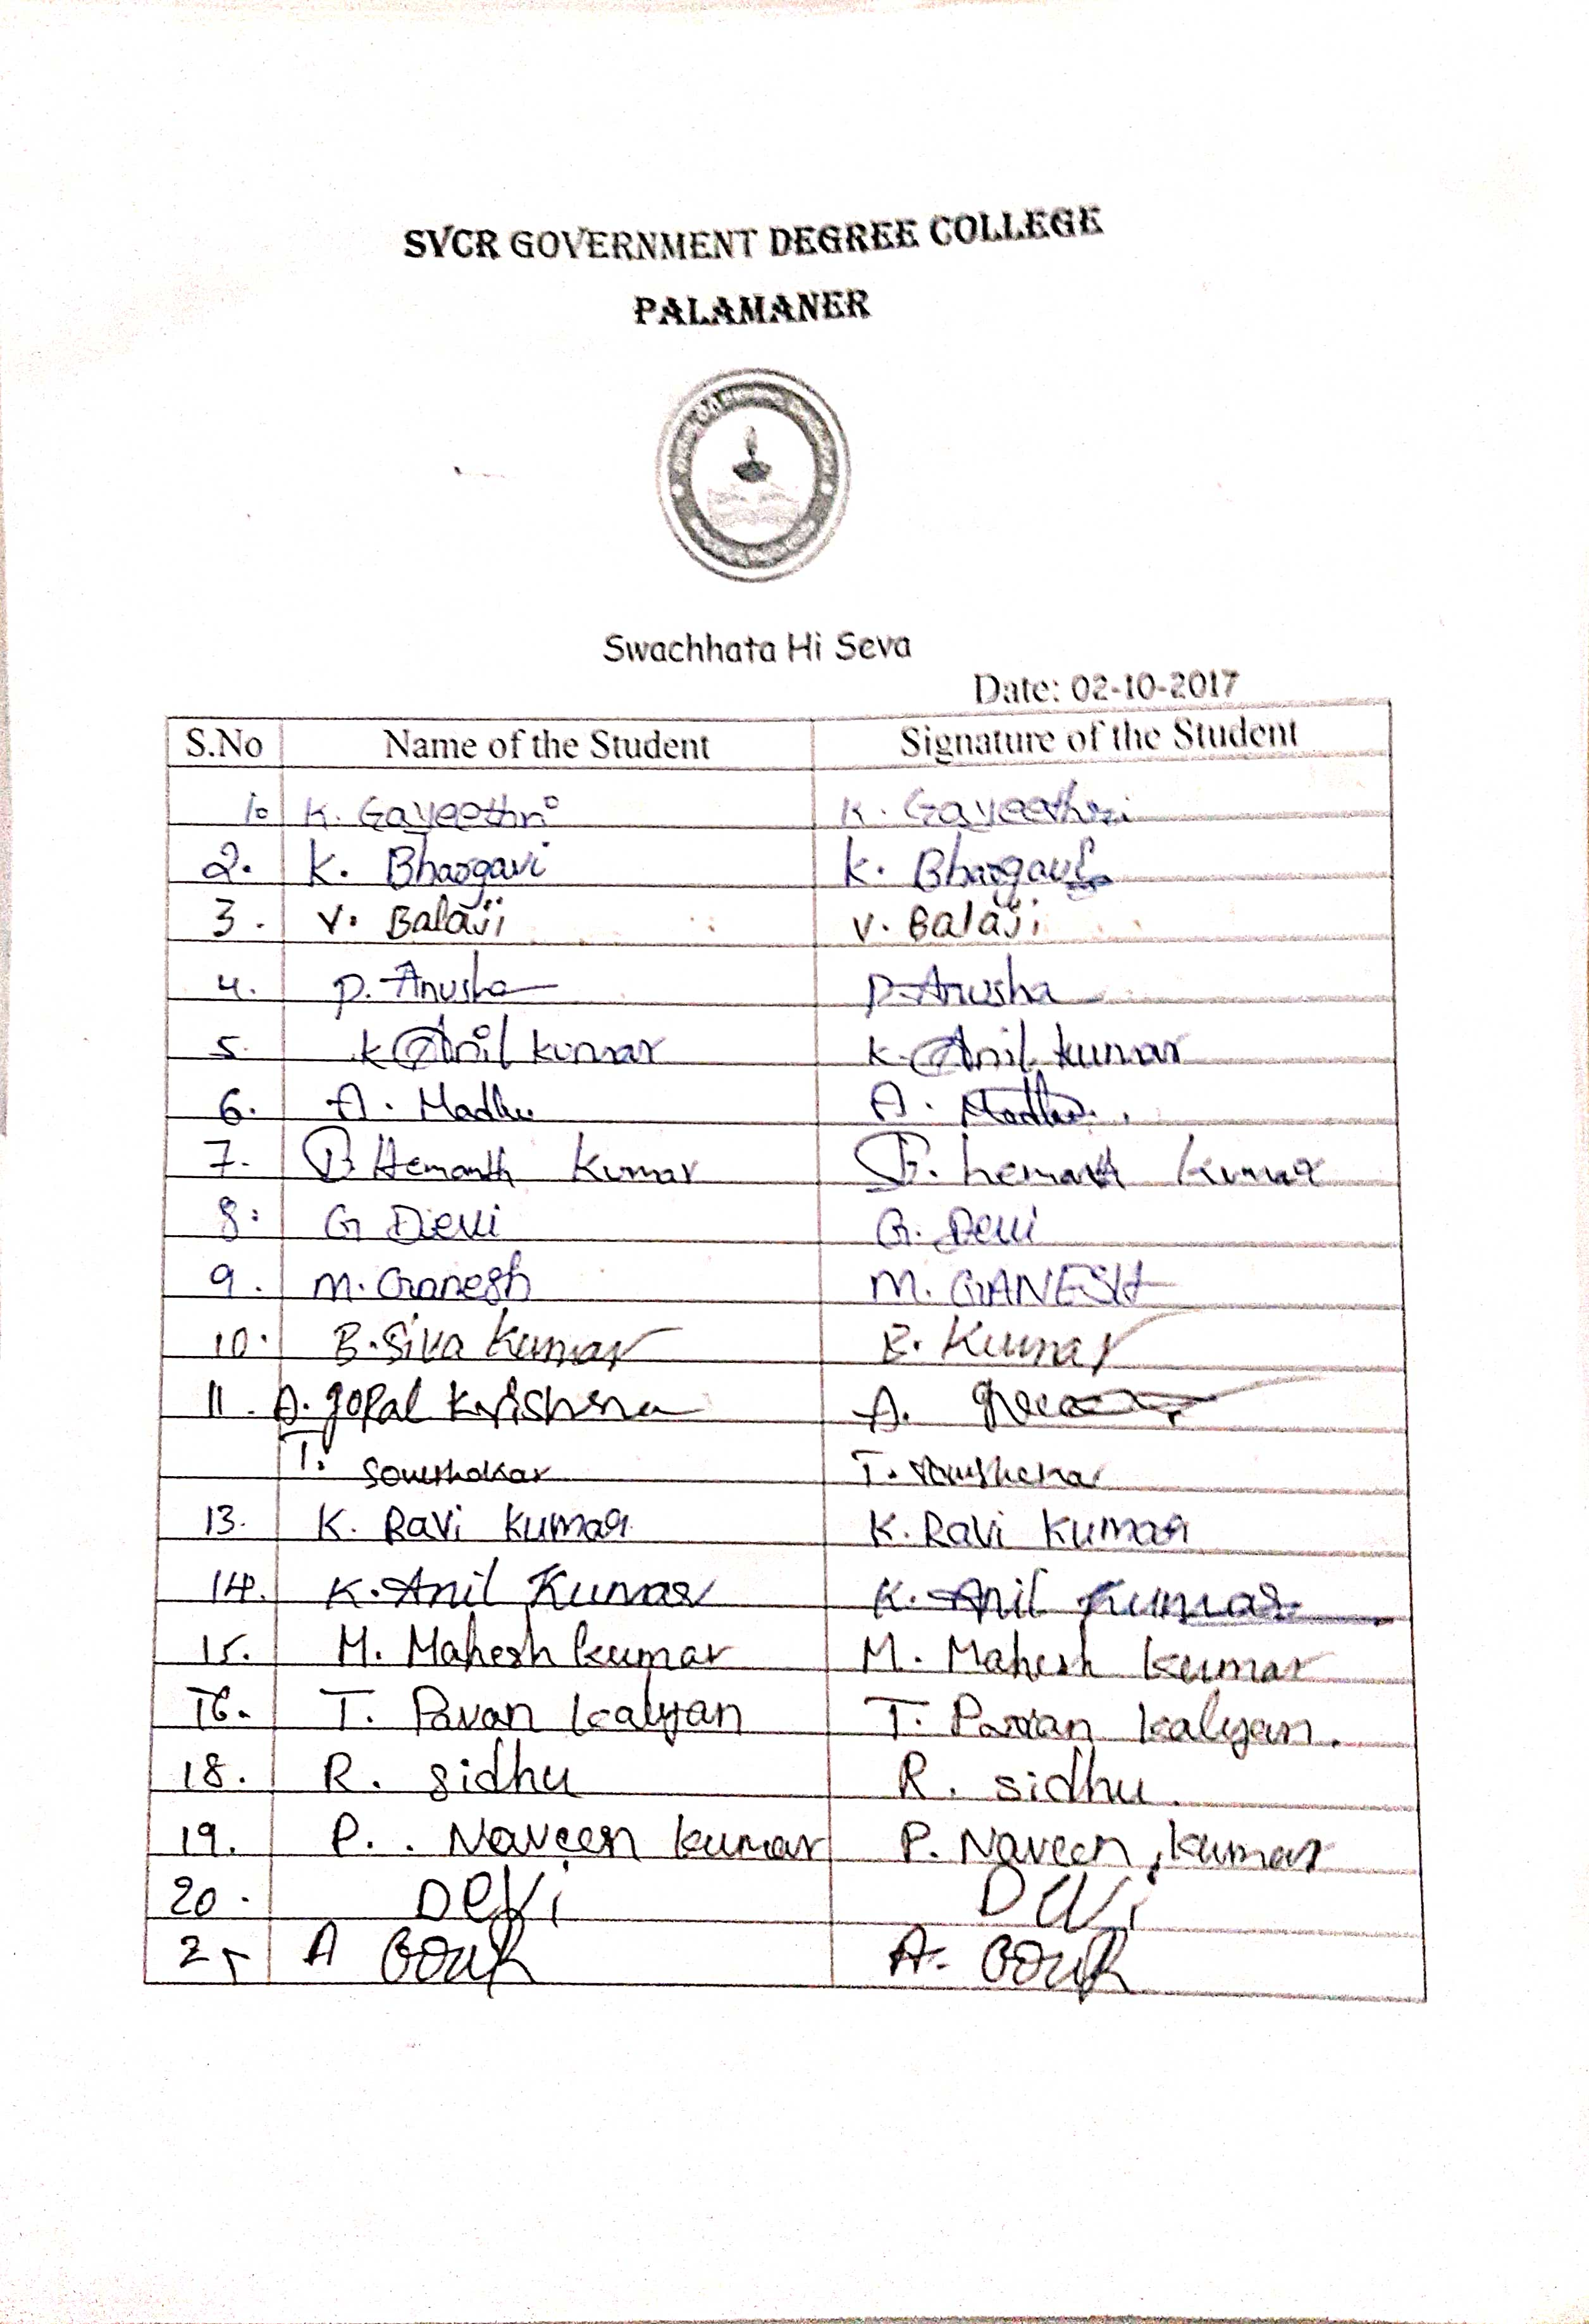 SVCR GOVERNMENT DEGREE COLLEGE
PALAMANER
Swachhata Hi Seva
Date: 02-10-2017
S.No Name of the Student Signature of the Student
1. K. Gayeethri K. Gayeethri
2. K. Bhargavi K. Bhargavi
3. V. Balaji V. Balaji
4. P. Anusha P. Anusha
5. K Anil kumar K. Anil kumar
6. A. Madhu A. Madhu
7. B Hemanth Kumar B. hemanth kumar
8. G Devi G. Devi
9. M. Ganesh M. GANESH
10. B. Siva Kumar B. Kumar
11. A. gopal Krishna A.
T. T.
13. K. Ravi kumar K. Ravi kumar
14. K. Anil Kumar K. Anil Kumar
15. M. Mahesh kumar M. Mahesh kumar
16. T. Pavan kalyan T. Pavan kalyan.
18. R. sidhu R. sidhu.
19. P. . Naveen kumar P. Naveen kumar
20. Devi Devi
2 A A.